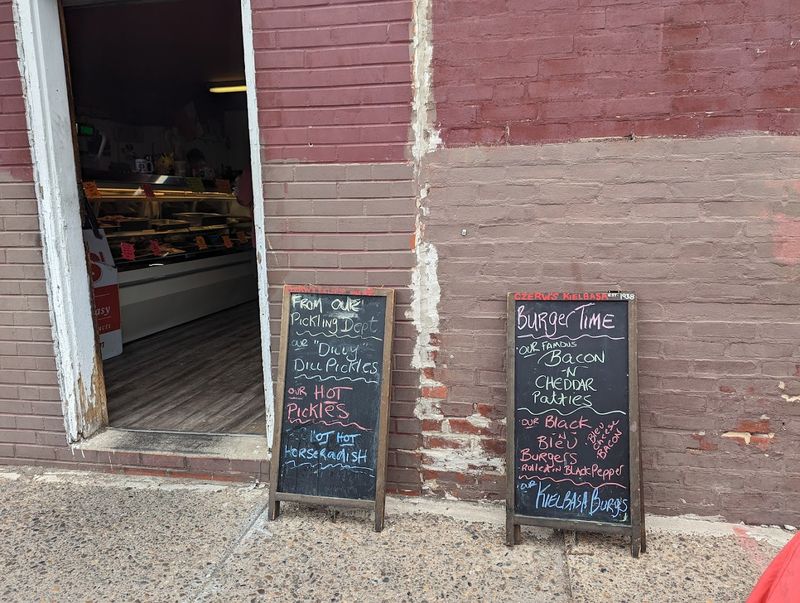 From Our
Pickling Dept
our "Dilly"
Dill Pickles
our Hot
Pickles
Hot Hot
Horseradish
CZERW'S KIELBASA EST 1938
Burger Time
our Famous
Bacon
-N-
Cheddar
Patties
our Black
N
Bleu
Burgers
Bleu
Cheese
Bacon
-Rolled in Black Pepper
our Kielbasa Burgs
asy